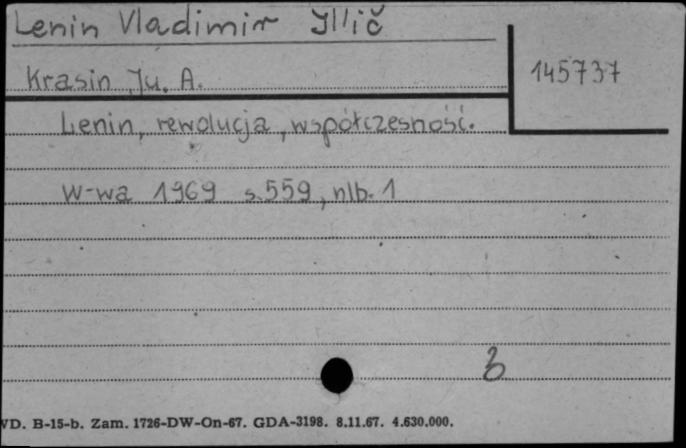 Lenin Vladimir Illič
145737
Krasin Ju. A.
Lenin, rewolucja, współczesność.
W-wa 1969 s.559, nlb. 1
VD. B-15-b. Zam. 1726-DW-On-67. GDA-3198. 8.11.67. 4.630.000.